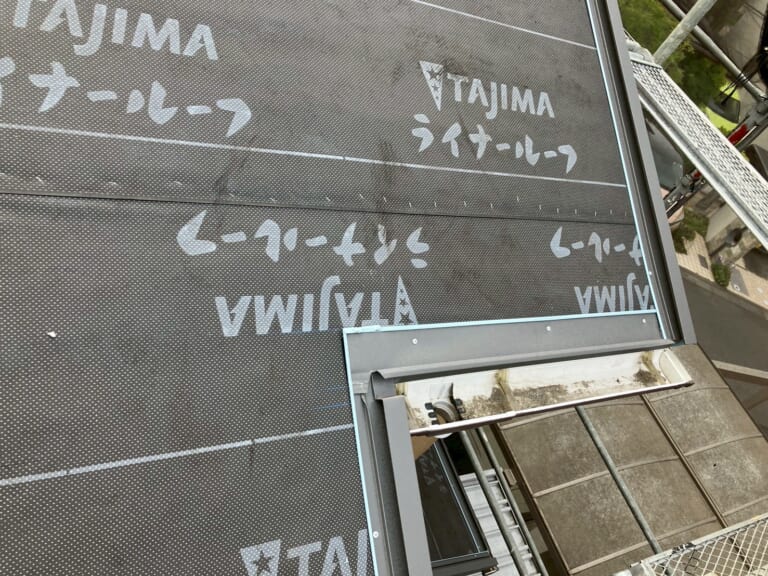 TAJIMA
ライナールーフ
TAJIMA
ライナールーフ
ライナールーフ
TAJIMA
ライナールーフ
TAJIMA
TAJIMA